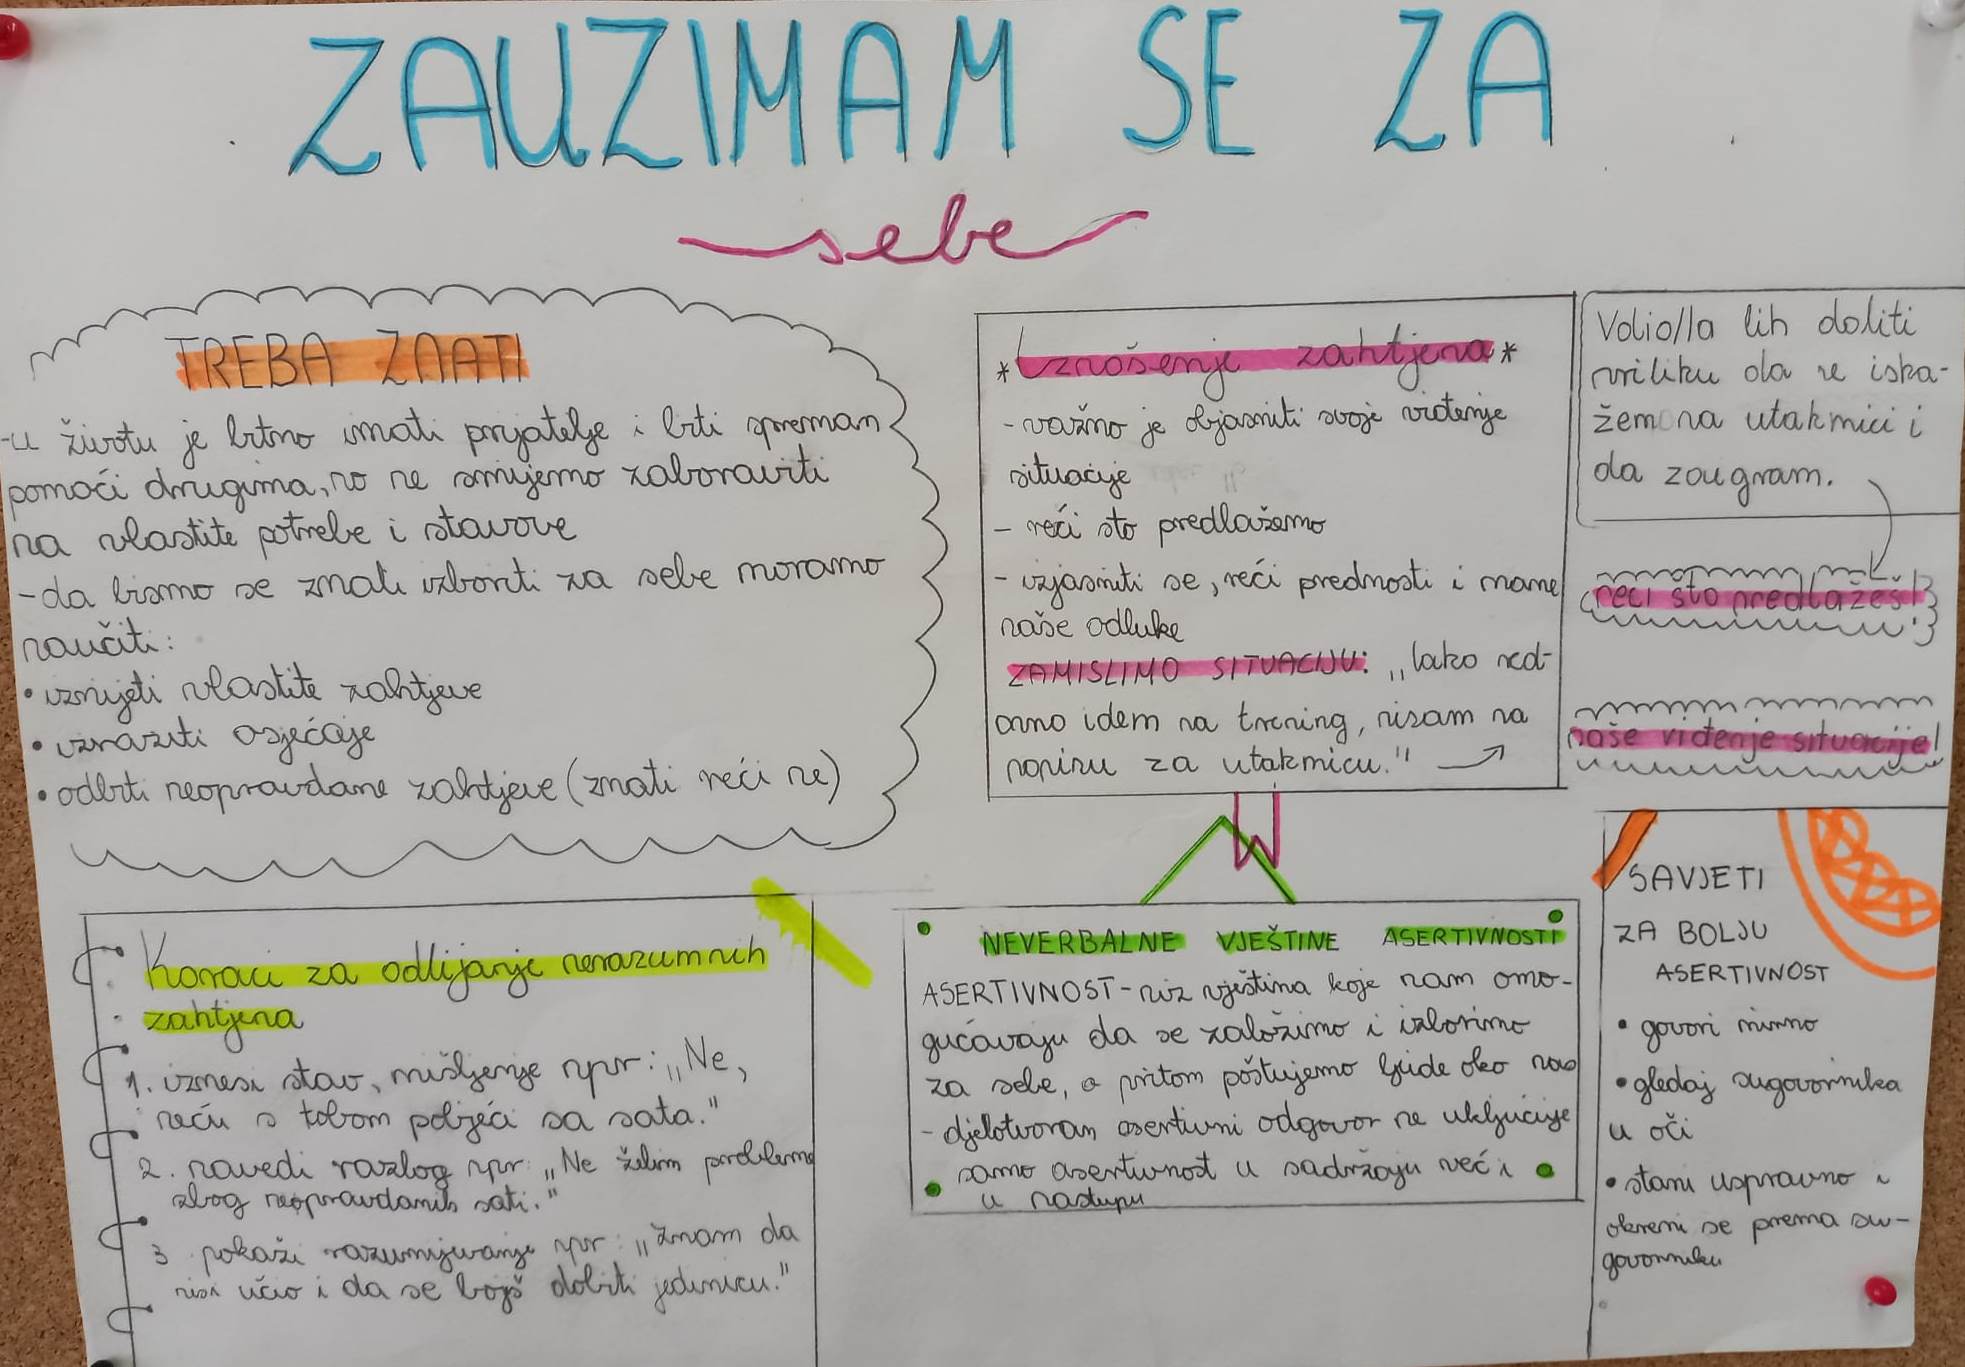 ZAUZIMAM SE ZA
sebe
TREBA ZNATI
-u životu je bitno imati prijatelje i biti spreman
pomoći drugima, no ne smijemo zaboraviti
na vlastite potrebe i stavove
-da bismo se znali izboriti za sebe moramo
naučiti:
• iznijeti vlastite zahtjeve
• izraziti osjećaje
• odbiti neopravdane zahtjeve (znati reći ne)
*Iznošenje zahtjeva*
- važno je objasniti svoje viđenje
situacije
- reći što predlažemo
- izjasniti se, reći prednosti i mane
naše odluke
ZAMISLIMO SITUACIJU: „Iako red-
ovno idem na trening, nisam na
popisu za utakmicu."
Volio/la bih dobiti
priliku da se iska-
žem na utakmici i
da zaigram.
reci što predlažeš!
naše viđenje situacije!
Koraci za odbijanje nerazumnih
zahtjeva
1. iznesi stav, mišljenje npr: „Ne,
neću s tobom pobjeći sa sata."
2. navedi razlog npr: „Ne želim probleme
zbog neopravdanih sati."
3 pokaži razumijevanje npr: „Znam da
nisi učio i da se bojiš dobiti jedinicu."
NEVERBALNE VJEŠTINE ASERTIVNOSTI
ASERTIVNOST-niz vještina koje nam omo-
gućavaju da se založimo i izborimo
za sebe, a pritom poštujemo ljude oko nas
- djelotvoran asertivni odgovor ne uključuje
samo asertivnost u sadržaju već i
u nastupu
SAVJETI
ZA BOLJU
ASERTIVNOST
• govori mirno
• gledaj sugovornika
u oči
• stani uspravno i
okreni se prema su-
govorniku